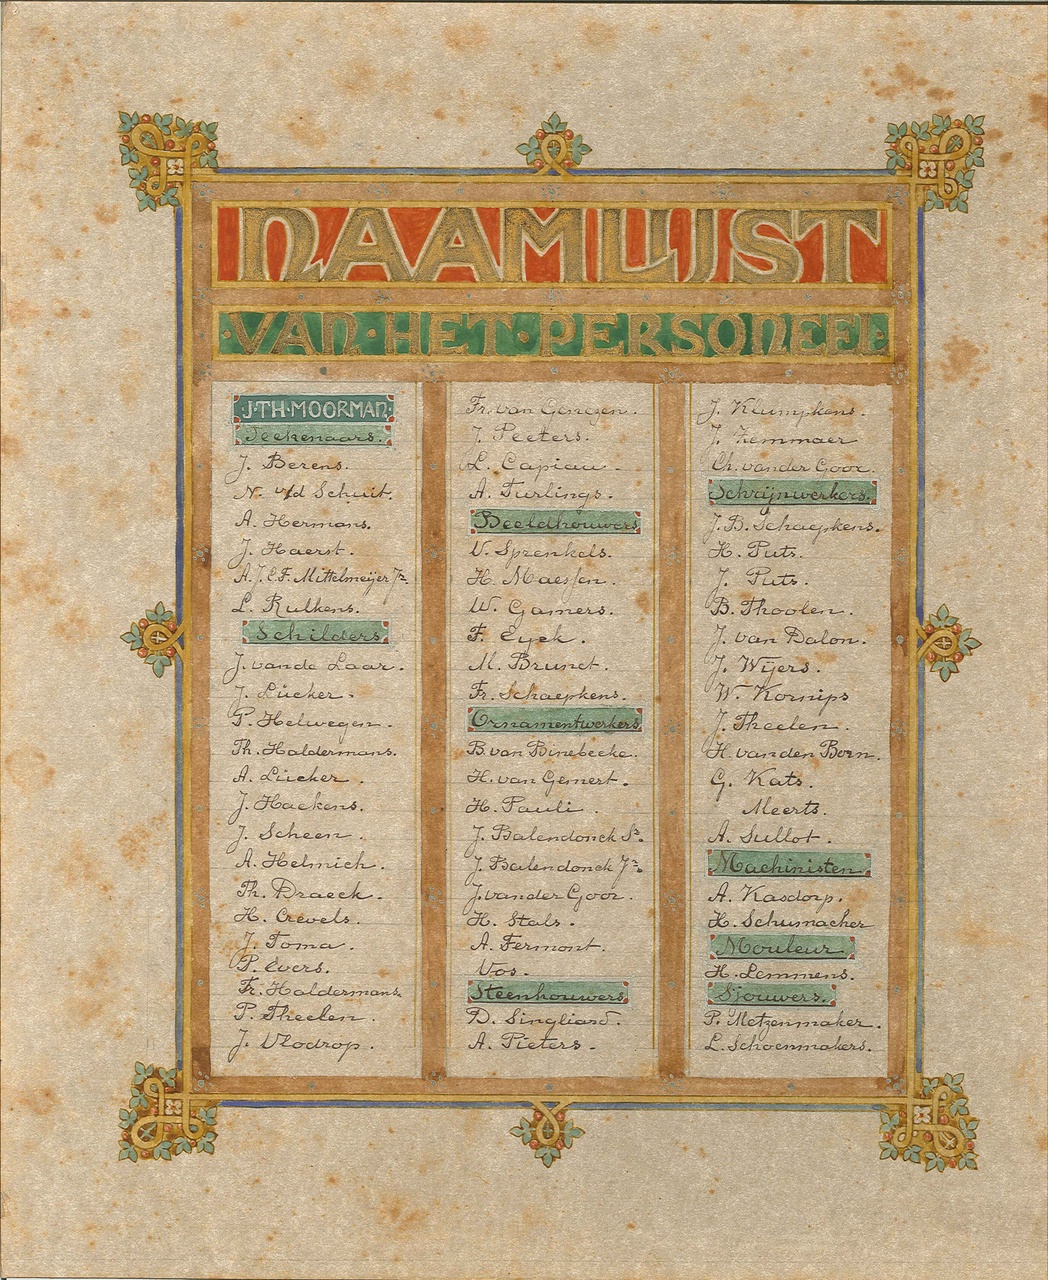 NAAMLIJST
VAN · HET · PERSONEEL
J·TH·MOORMAN·
Teekenaars.
J. Berens.
N. v/d Schuit.
A. Hermans.
J. Haerst.
A.J.C.F. Mittelmeijer Jr.
L. Rulkens.
Schilders
J. van de Laar.
J. Lücker.
P. Helwegen.
Th. Haldermans.
A. Lücker.
J. Haekens.
J. Scheen.
A. Helmich.
Th. Draeck.
H. Crevels.
J. Toma.
P. Evers.
Fr. Haldermans.
P. Theelen.
J. Vlodrop.
Fr. van Genegen.
J. Peeters.
L. Capiau.
A. Turlings.
Beeldhouwers
V. Sprenkels.
H. Maessen.
W. Gamers.
F. Eyck.
M. Brunet.
Fr. Schaepkens.
Ornamentwerkers
B. van Binebeeke.
H. van Gemert.
H. Pauli.
J. Balendonck Sr.
J. Balendonck Jr.
J. van der Goor.
H. Stals.
A. Fermont.
Vos.
Steenhouwers
D. Singliard.
A. Pieters.
J. Klumpkens.
J. Zemmaer
Ch. van der Goor.
Schrijnwerkers.
J.B. Schaepkens.
H. Puts.
J. Puts.
B. Thoolen.
J. van Dalon.
J. Wijers.
W. Kornips
J. Theelen.
H. van den Born.
G. Kats.
Meerts.
A. Sullot.
Machinisten
A. Kasdorp.
H. Schumacher
Mouleur.
H. Lemmens.
Sjouwers.
P. Metzenmaker.
L. Schoenmakers.